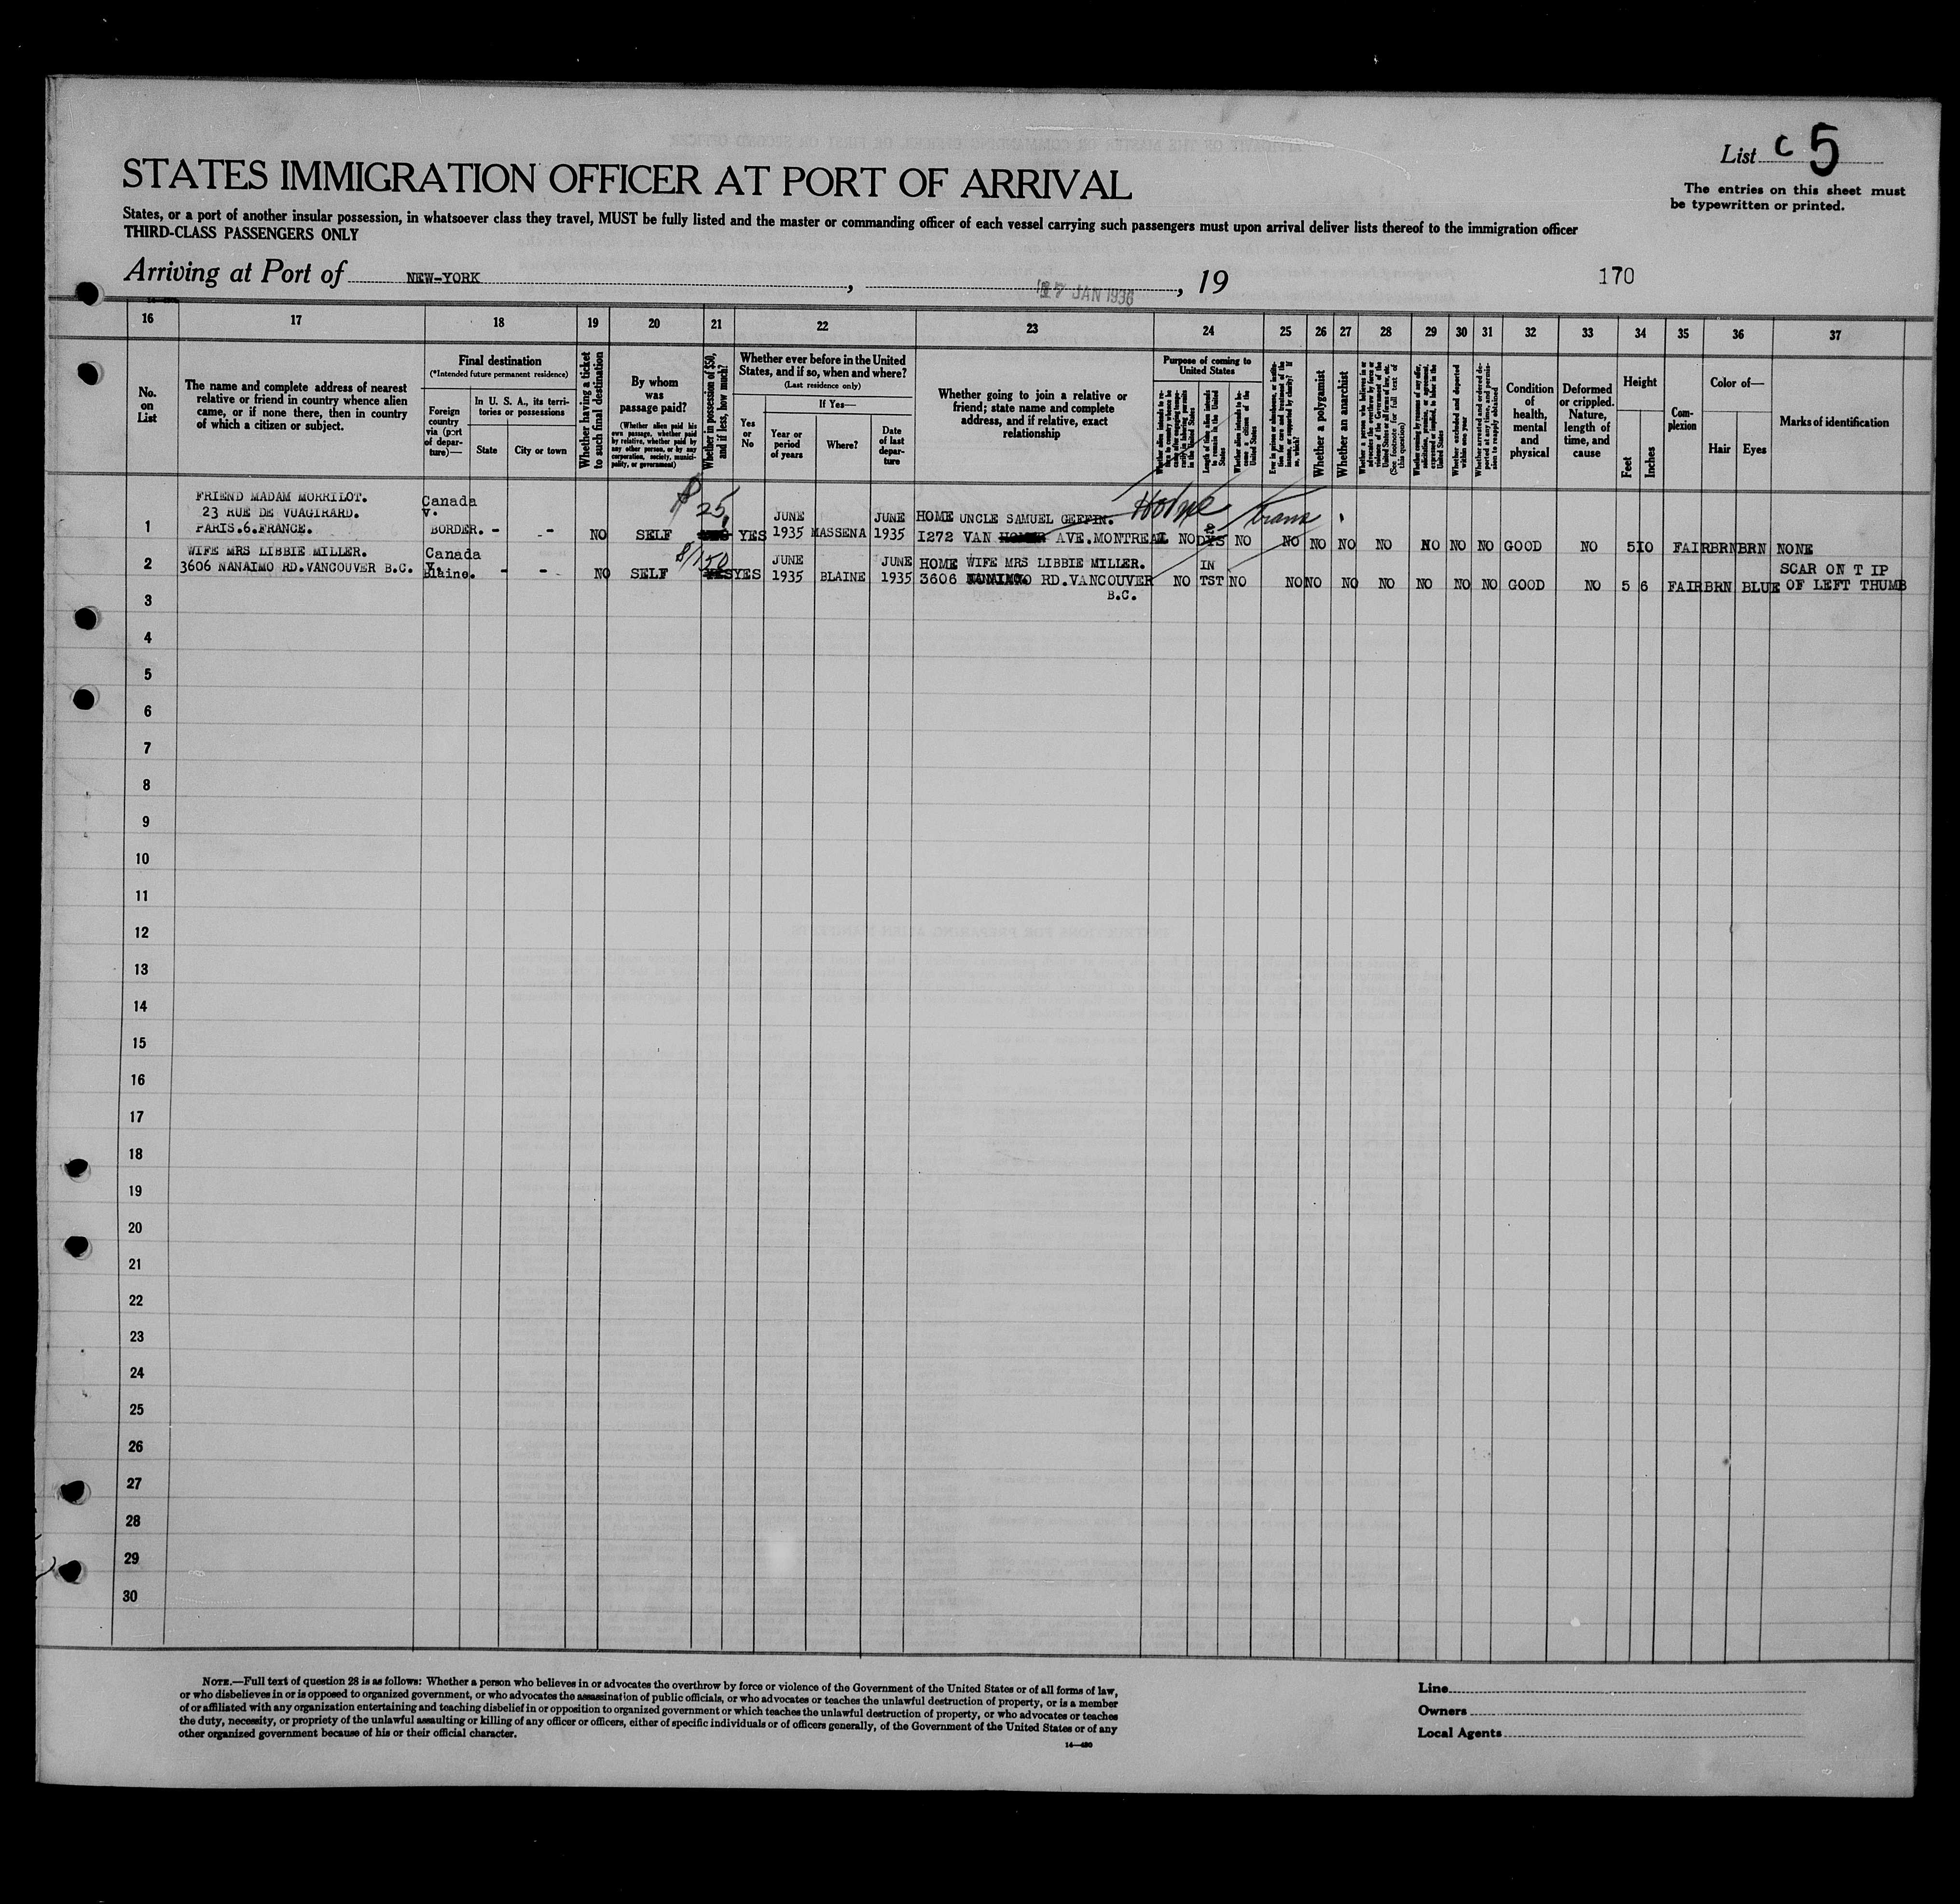 List C 5
STATES IMMIGRATION OFFICER AT PORT OF ARRIVAL
The entries on this sheet must
be typewritten or printed.
States, or a port of another insular possession, in whatsoever class they travel, MUST be fully listed and the master or commanding officer of each vessel carrying such passengers must upon arrival deliver lists thereof to the immigration officer
THIRD-CLASS PASSENGERS ONLY
Arriving at Port of NEW-YORK, JAN 1936, 19
170
16 17 18 19 20 21 22 23 24 25 26 27 28 29 30 31 32 33 34 35 36 37
No.
on
List
The name and complete address of nearest
relative or friend in country whence alien
came, or if none there, then in country
of which a citizen or subject.
Final destination
(*Intended future permanent residence)
Foreign
country
via (port
of depar-
ture)—
In U. S. A., its terri-
tories or possessions
State
City or town
Whether having a ticket
to such final destination
By whom
was
passage paid?
(Whether alien paid his
own passage, whether paid
by relative, whether paid by
any other person, or by any
corporation, society, munici-
pality, or government)
Whether in possession of $50,
and if less, how much?
Whether ever before in the United
States, and if so, when and where?
(Last residence only)
Yes
or
No
If Yes—
Year or
period
of years
Where?
Date
of last
depar-
ture
Whether going to join a relative or
friend; state name and complete
address, and if relative, exact
relationship
Purpose of coming to
United States
Length of time alien intends
to remain in the United
States
Whether alien intends to be-
come a citizen of the
United States
Whether a polygamist
Whether an anarchist
(See footnote for full text of
this question)
Whether excluded and deported
within one year
Condition
of
health,
mental
and
physical
Deformed
or crippled.
Nature,
length of
time, and
cause
Height
Feet
Inches
Com-
plexion
Color of—
Hair
Eyes
Marks of identification
1
FRIEND MADAM MORRILOT.
23 RUE DE VUAGIRARD.
PARIS.6.FRANCE.
Canada
v.
BORDER. - -
NO SELF $25 YES
JUNE
1935 MASSENA
JUNE
1935
HOME UNCLE SAMUEL GEFFIN.
1272 VAN AVE.MONTREAL
Home Trans
NO DYS NO NO NO NO NO NO NO NO GOOD NO 5 10 FAIR BRN BRN NONE
2
WIFE MRS LIBBIE MILLER.
3606 NANAIMO RD.VANCOUVER B.C.
Canada
v.
Blaine. - -
NO SELF $150 YES YES
JUNE
1935 BLAINE
JUNE
1935
HOME WIFE MRS LIBBIE MILLER.
3606 NANAIMO RD.VANCOUVER
B.C.
NO IN
TST NO NO NO NO NO NO NO NO GOOD NO 5 6 FAIR BRN BLUE
SCAR ON T IP
OF LEFT THUMB
3
4
5
6
7
8
9
10
11
12
13
14
15
16
17
18
19
20
21
22
23
24
25
26
27
28
29
30
NOTE.—Full text of question 28 is as follows: Whether a person who believes in or advocates the overthrow by force or violence of the Government of the United States or of all forms of law,
or who disbelieves in or is opposed to organized government, or who advocates the assassination of public officials, or who advocates or teaches the unlawful destruction of property, or is a member
of or affiliated with any organization entertaining and teaching disbelief in or opposition to organized government or which teaches the unlawful destruction of property, or who advocates or teaches
the duty, necessity, or propriety of the unlawful assaulting or killing of any officer or officers, either of specific individuals or of officers generally, of the Government of the United States or of any
other organized government because of his or their official character.
14—480
Line
Owners
Local Agents